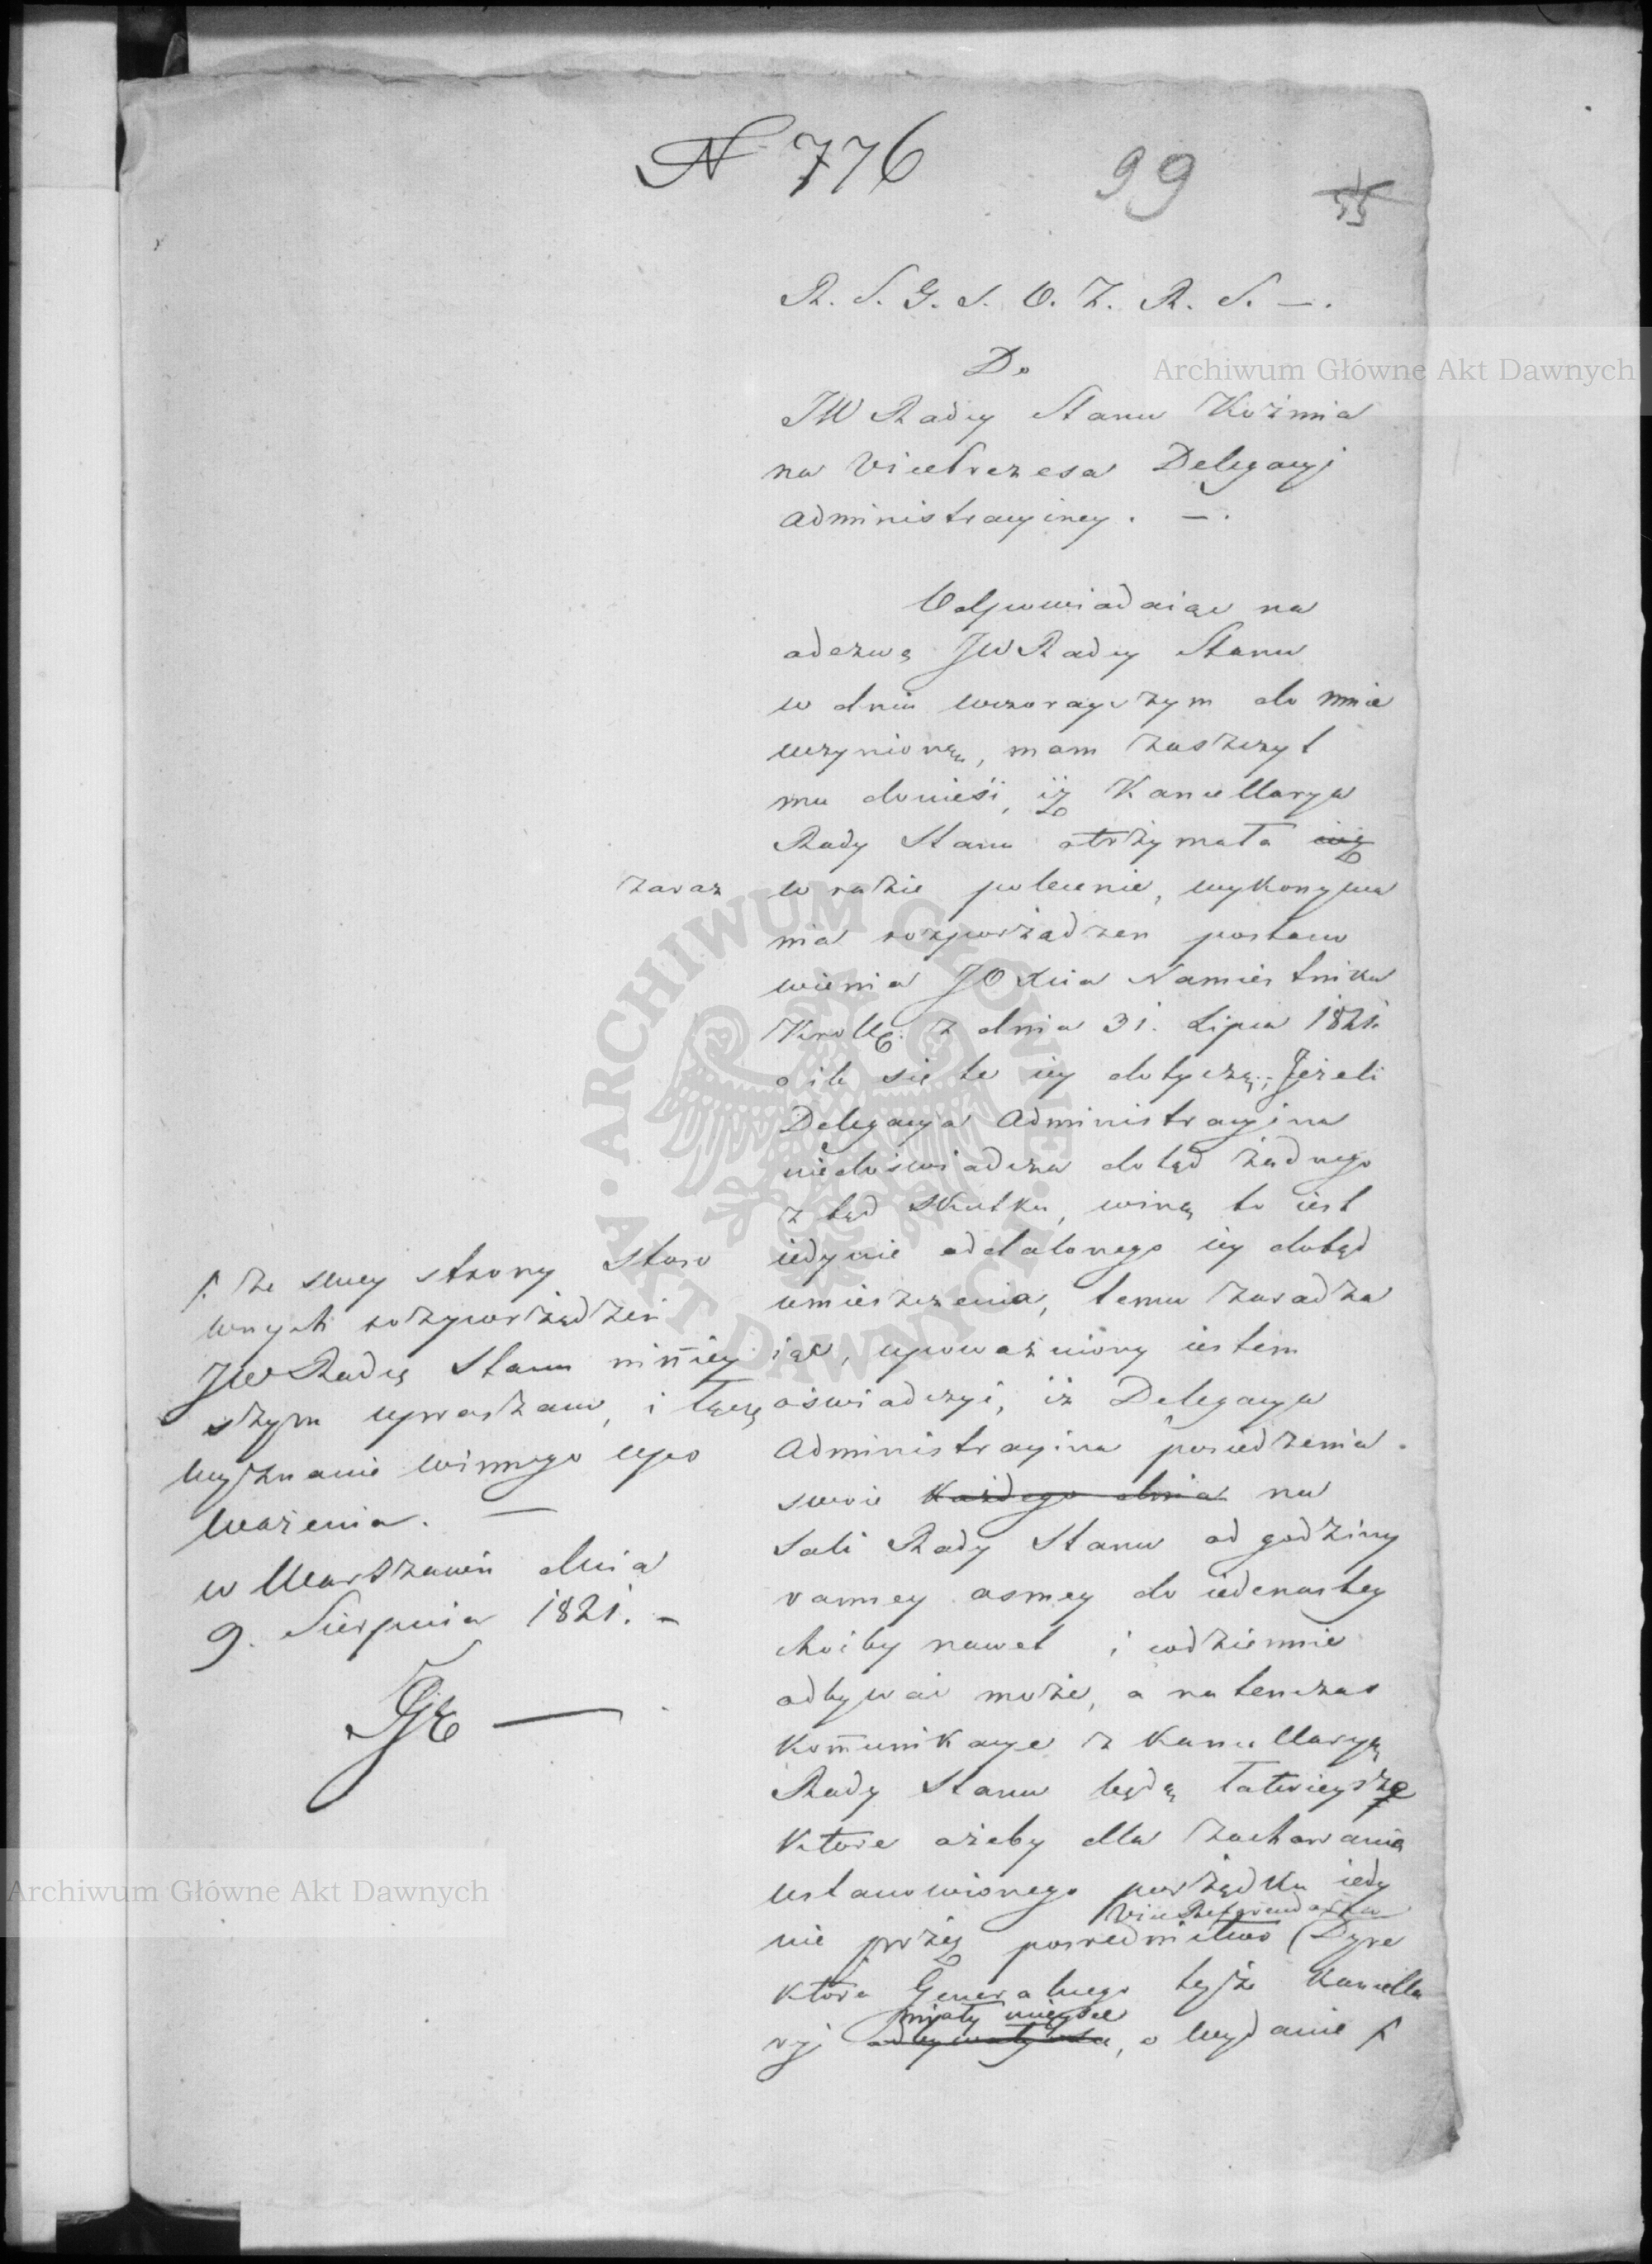 N 776
99
55
R. S. G. S. O. Z. R. S. —.
Do
JW Radcy Stanu Koźmia
na VicePrezesa Delegacyi
Administracyiney. —.
Odpowiadaiąc na
odezwę JW Radcy Stanu
w dniu wczorayszym do mnie
uczynioną, mam zaszczyt
mu donieść, iż Kancellarya
Rady Stanu otrzymała iuż
zaraz
w razie polecenie, wykonywa
nia rozporządzen postano
wienia JO Xcia Namiestnika
Krollg: z dnia 31. Lipca 1821.
o ile się te iey dotyczą; Jeżeli
Delegacya Administracyina
niedoświadcza dotąd żadnego
z tąd skutku, winą to iest
iedynie oddalonego iey dotąd
umieszczenia, temu zaradza
iąc, upoważniony iestem
oświadczyć, iż Delegacya
Administracyina posiedzenia
swoie każdego dnia na
Sali Rady Stanu od godziny
ranney osmey do iedenastey
choćby nawet i codziennie
odbywać może, a natenczas
kom̄unikacye z Kancellaryą
Rady Stanu będą łatwieysze
które ażeby dla zachowania
ustanowionego porządku iedy
Vice Referendarza
nie przez posrednictwo (Dyre
ktora Generalnego teyże Kancella
miały mieysce
ryi odbywały się, o wydanie f
f. ze swey strony stoso
wnych rozporządzeń
JW Radcę Stanu nin̄iey
szym upraszam, i łączę
wyznanie winnego upo
ważenia. —
w Warszawie dnia
9. Sierpnia 1821. –
Archiwum Główne Akt Dawnych
ARCHIWUM GŁÓWNE AKT DAWNYCH
Archiwum Główne Akt Dawnych